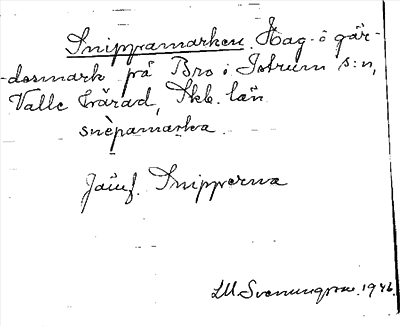 Snippamarken. Hag- o gär-
-desmark på Bro i Istrum s:n,
Valle härad, Skb. län
snèpamarka.
Jämf. Snipporna
LM. Svenungsson. 1946.